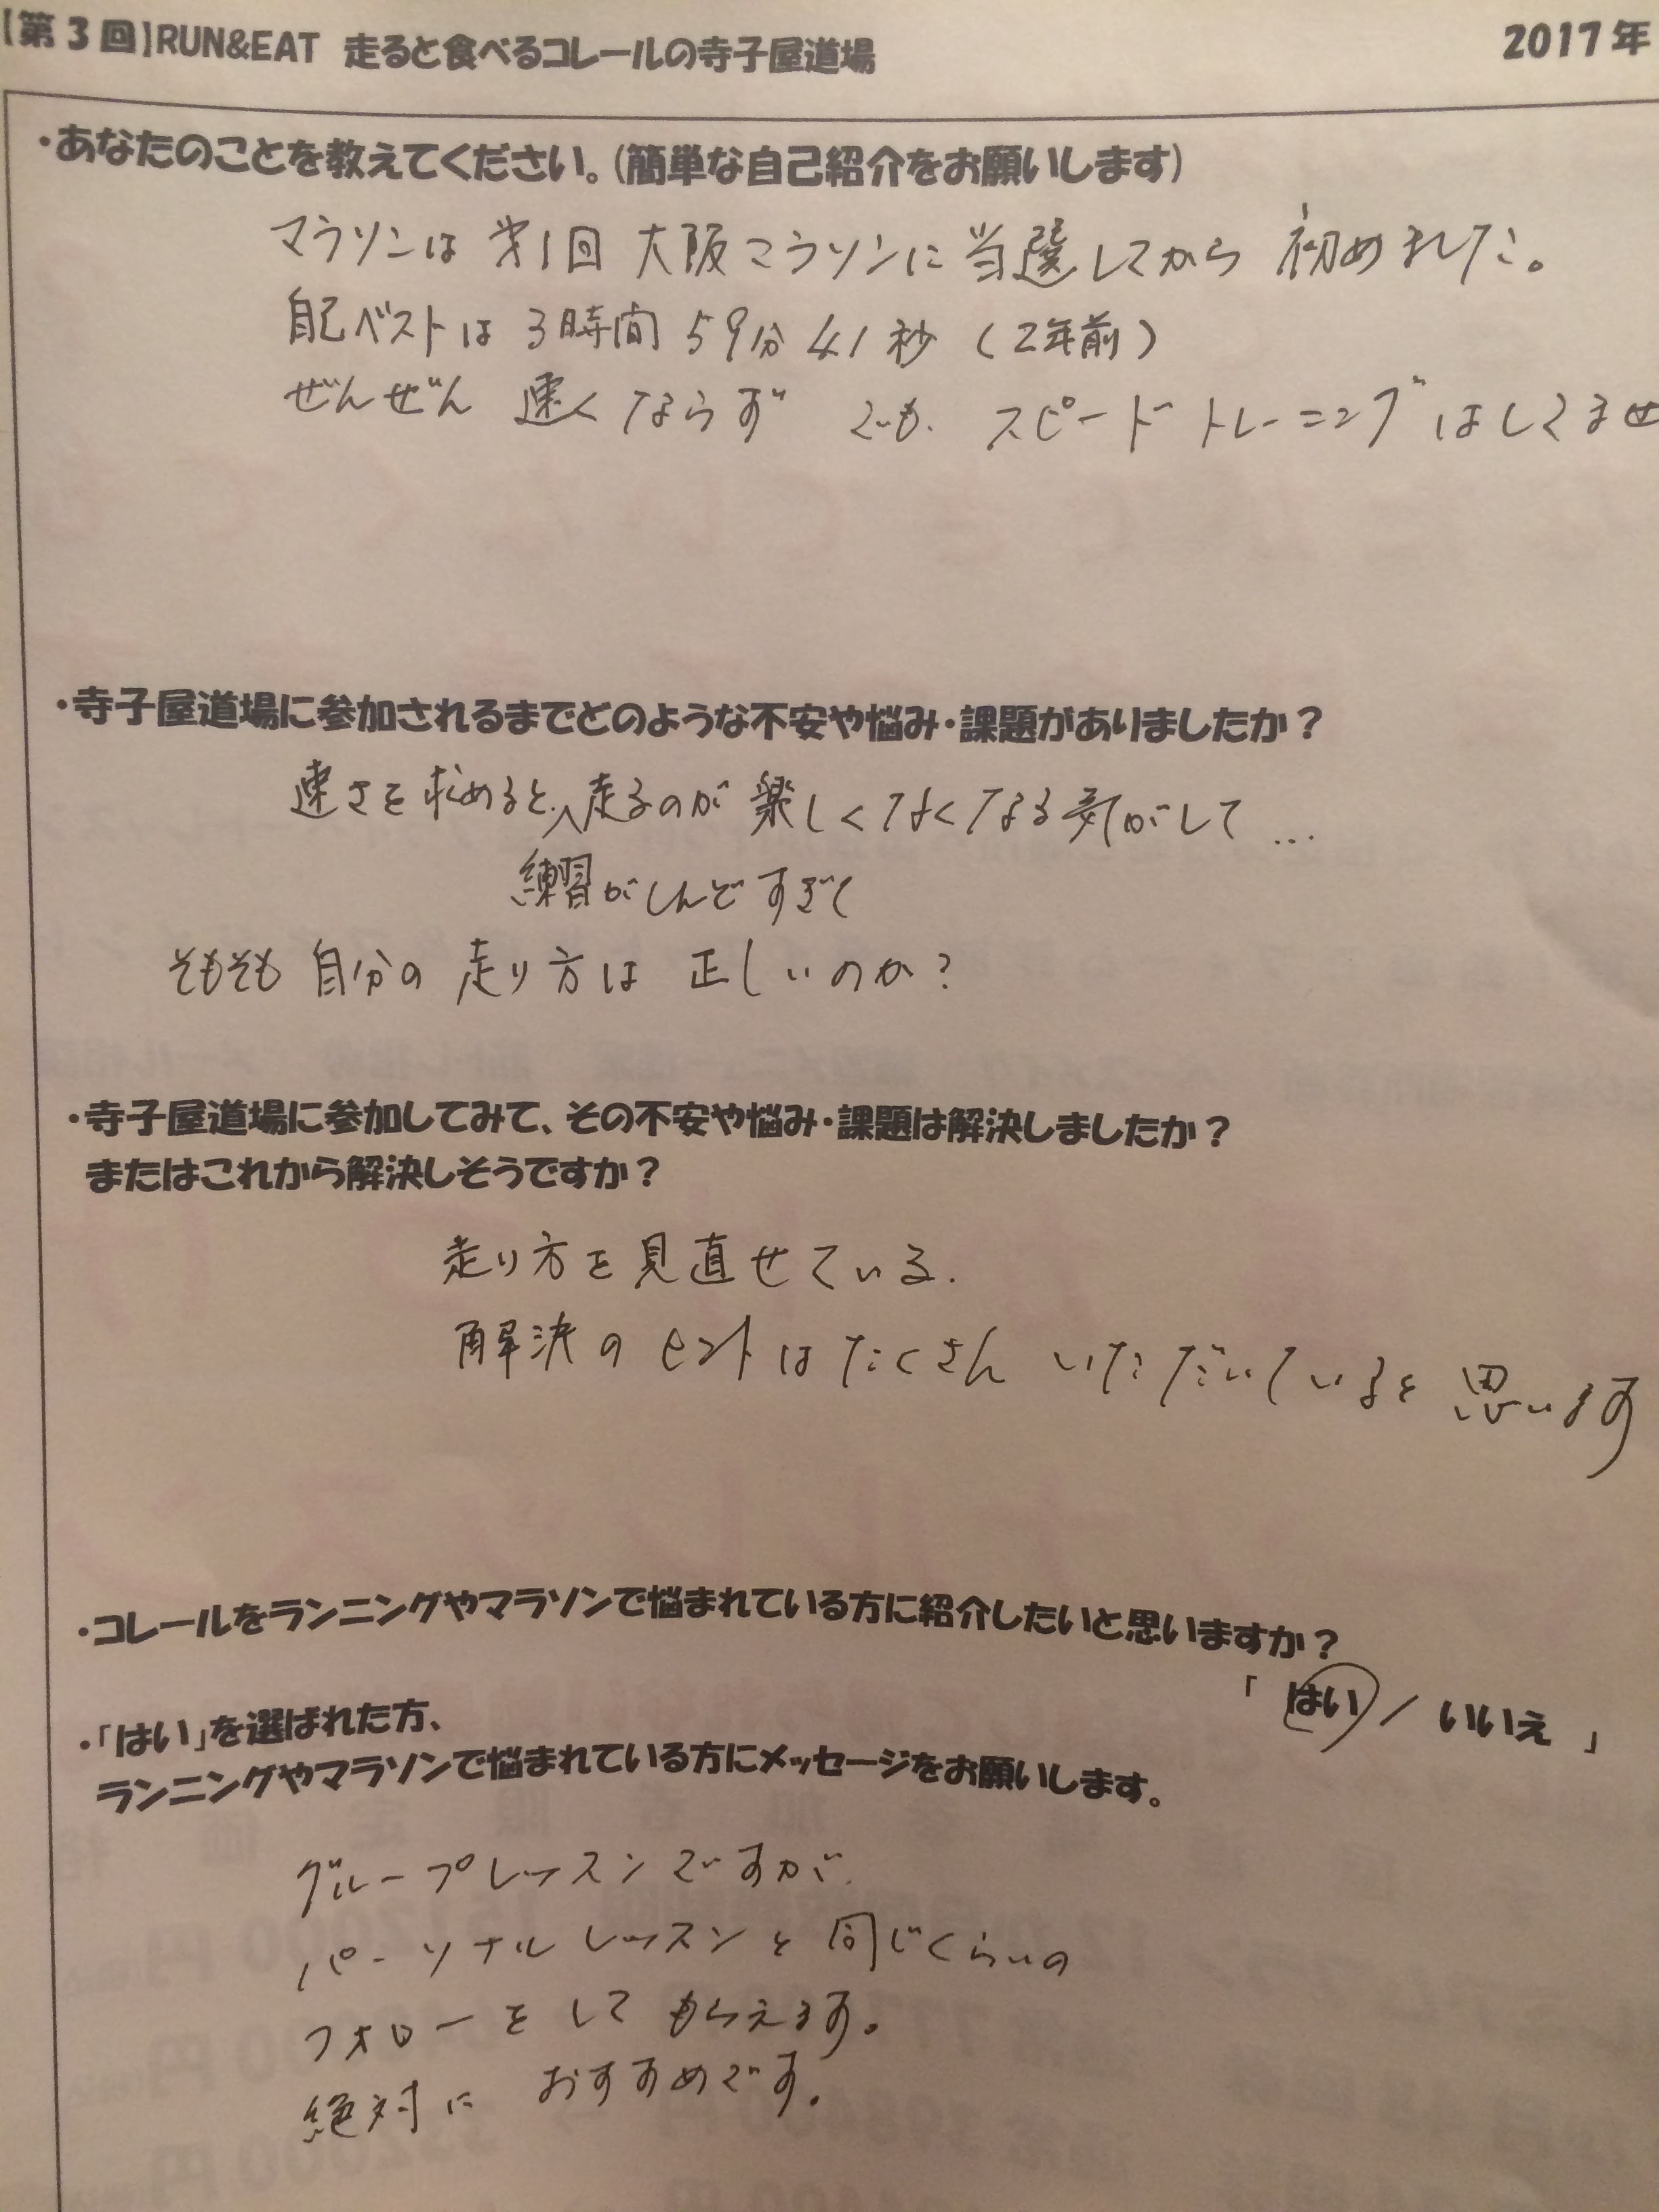 【第3回】RUN&EAT 走ると食べるコレールの寺子屋道場 2017年
・あなたのことを教えてください。(簡単な自己紹介をお願いします)
マラソンは 第1回 大阪マラソンに当選してから 初めました。
自己ベストは 3時間 59分 41秒 (2年前)
ぜんぜん 速くならず でも、スピードトレーニングはしてませ
・寺子屋道場に参加されるまでどのような不安や悩み・課題がありましたか?
速さを求めると、走るのが楽しくなくなる気がして…
練習がしんどすぎて
そもそも 自分の 走り方は 正しいのか?
・寺子屋道場に参加してみて、その不安や悩み・課題は解決しましたか?
またはこれから解決しそうですか?
走り方を見直せている.
解決のヒントはたくさん いただいていると 思います
・コレールをランニングやマラソンで悩まれている方に紹介したいと思いますか?
「 はい / いいえ 」
・「はい」を選ばれた方、
ランニングやマラソンで悩まれている方にメッセージをお願いします。
グループレッスンですが、
パーソナルレッスンと同じくらいの
フォローをして もらえます。
絶対に おすすめです。